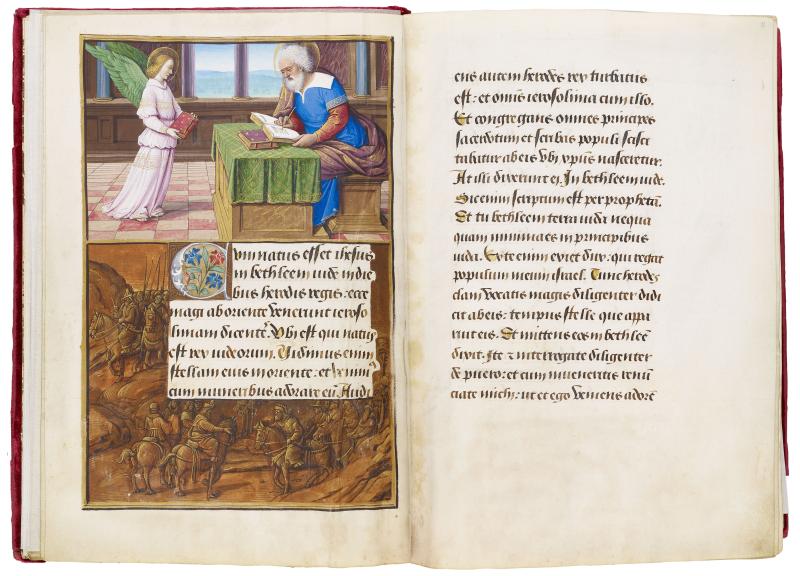 Cum natus esset ihesus
in bethleem iude in die
bus herodis regis: ecce
magi ab oriente venerunt ieroso
limam dicentes. Ubi est qui natus
est rex iudeorum. Vidimus enim
stellam eius in oriente: et venim
cum muneribus adorare eū. Audi
ens autem herodes rex turbatus
est: et omīs ierosolima cum illo.
Et congregans omnes principes
sacerdotum et scribas populi scisci
tabatur ab eis vbi xp̄us nasceretur.
At illi dixerunt ei. In bethleem iude.
Sic enim scriptum est per prophetā.
Et tu bethleem terra iuda nequa
quam minima es in principibus
iuda. Ex te enim exiet dux: qui regat
populum meum israel. Tunc herodes
clam vocatis magis diligenter didi
cit ab eis: tempus stelle que appa
ruit eis. Et mittens eos in bethleē
dixit. Ite ⁊ interrogate diligenter
de puero: et cum inueneritis renū
ciate michi: ut et ego veniens adorē